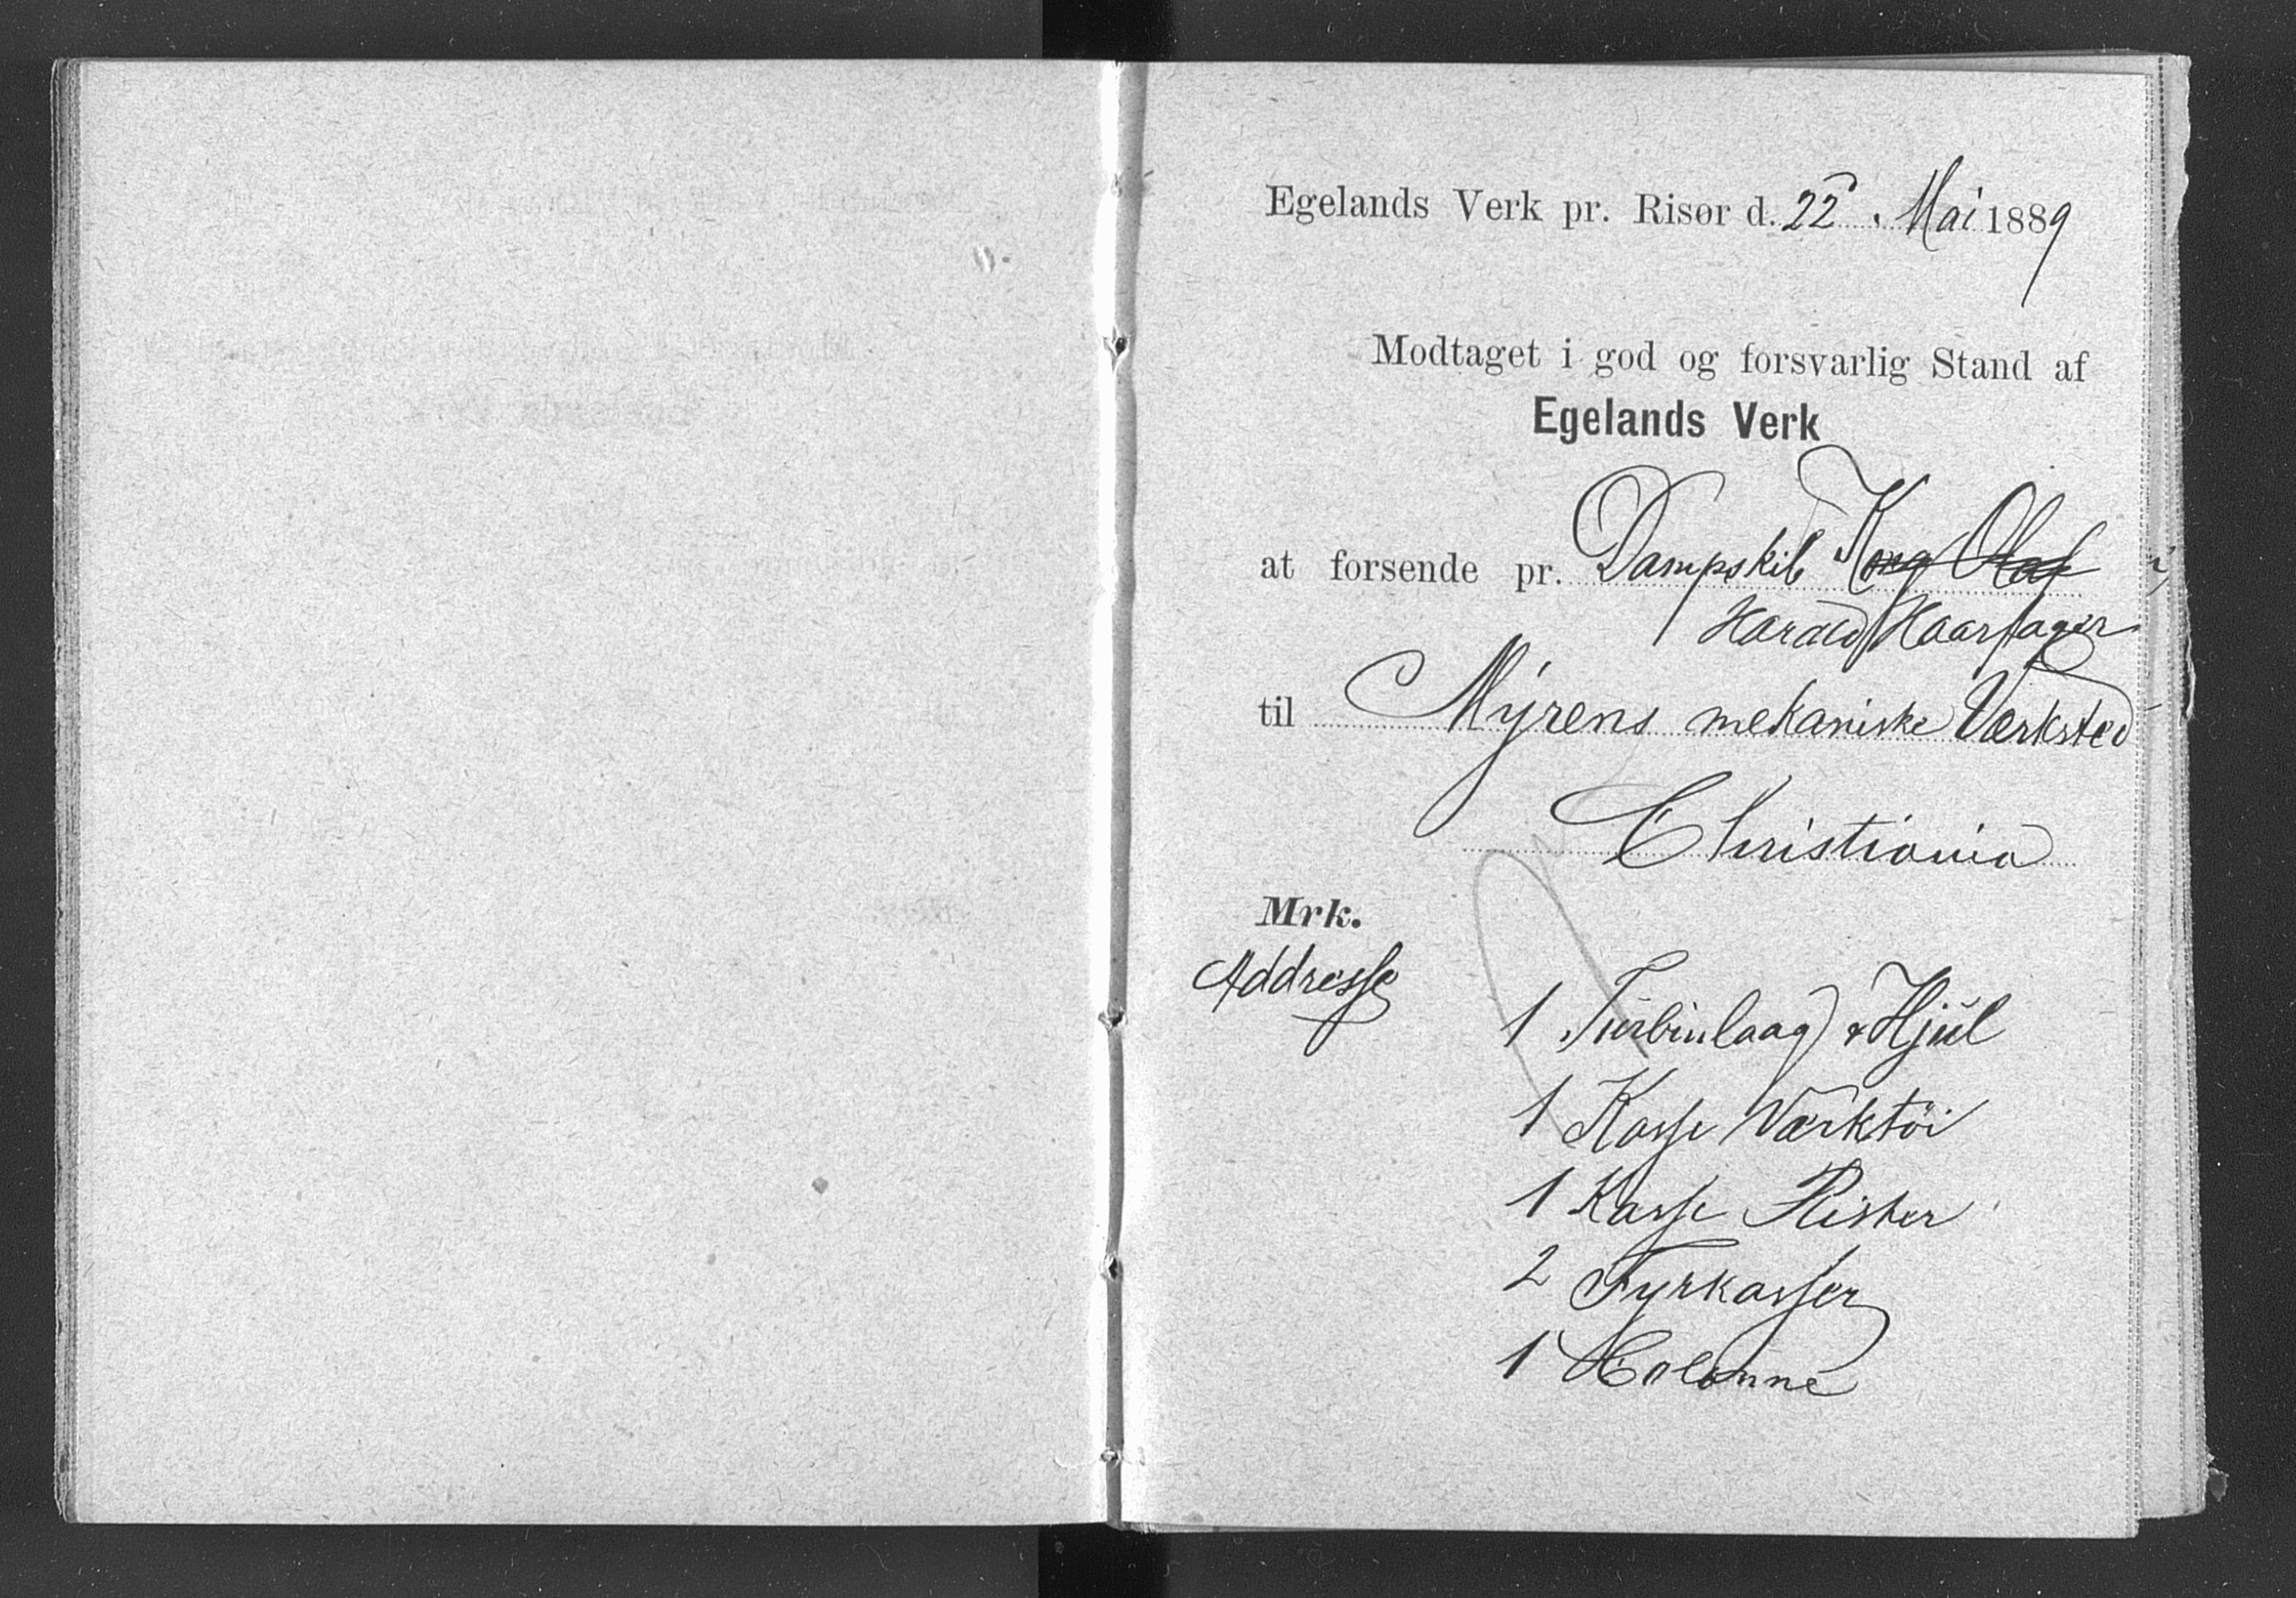 Egelands Verk pr. Risør d. 22 . Mai 1889
Modtaget i god og forsvarlig Stand af
Egelands Verk
at forsende pr. Dampskib Kong Olaf
Harald Haarfager
til Myrens mekaniske Værksted
Christiania
Mrk.
Addresse
1 Turbinlaag & Hjul
1 Kasse Værktöi
1 Kasse Rister
2 Fyrkasser
1 Colonne